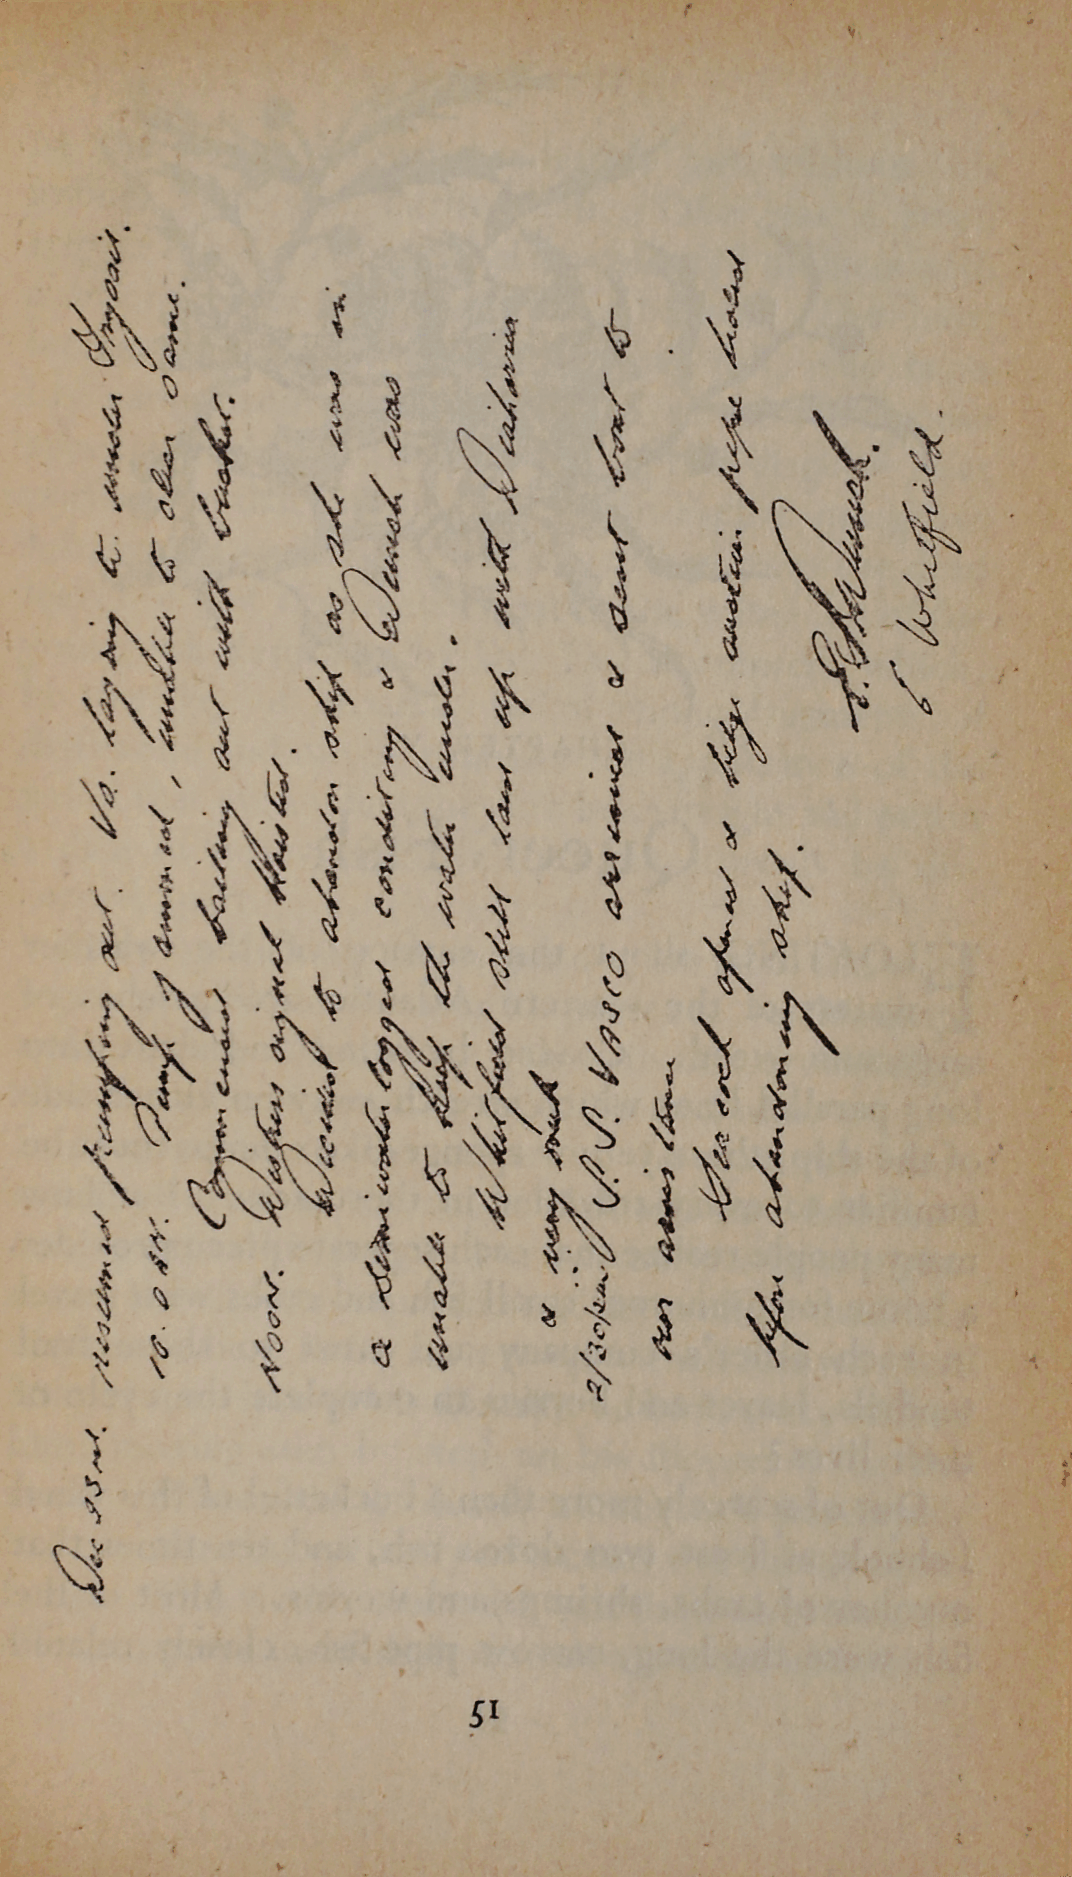 Dec 23rd. resumed pumping out. Vs. laying to under Trysail.
10. 0 AM. Pump jammed, unable to clear same.
Commenced bailing out with bucket.
NOON. Distress signal Hoisted.
Decided to abandon ship as she was in
a semi waterlogged conditing & Dunsh was
unable to keep the water under.
Whitfield still laid up with Diaharria
& very weak
2/30 pm S.S. VASCO arrived & sent boat to
our assistance
Sea cock opened & bilge suction pipe broken
before abandoning ship.
Whitfield.
51